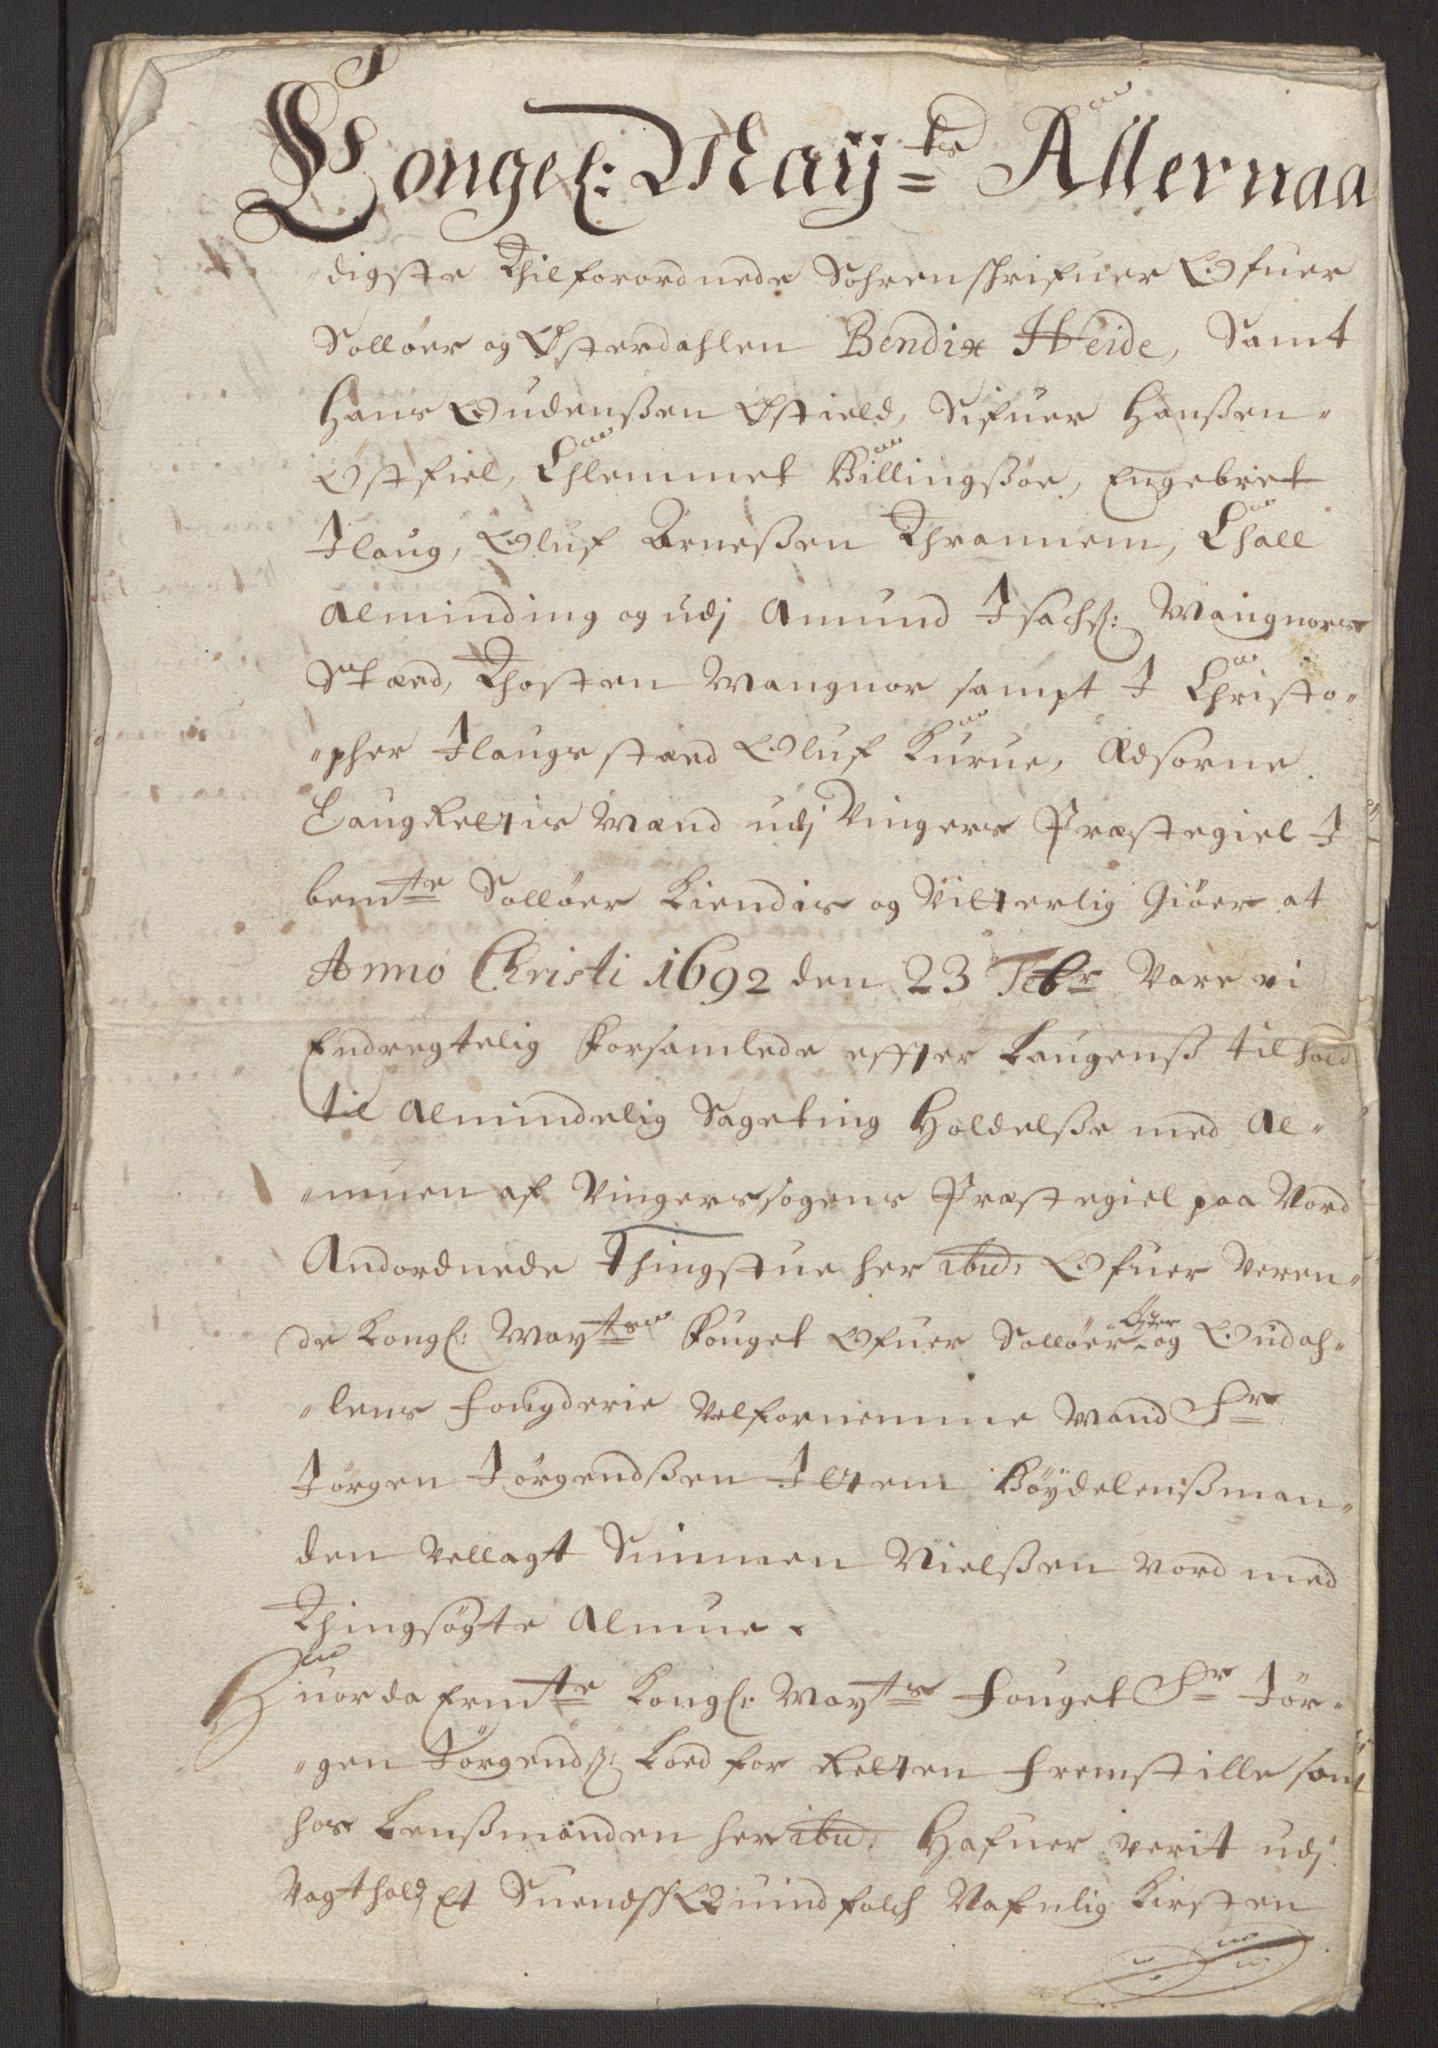 Kongel: Mayts Allernaa
digste Thilforordnede Sohrenschrifuer Ofuer
Solløer og Østerdahlen Bendix Heide, Samt
Hans Oudenßen Østield, Sifuer Hanßen
Østfiel, Chlemmet Billingßøe, Engebret
Jlaug, Oluf Arneßen Thrannem, Chall
Alminding og udj Amund Jsachß: Wangnors
Stæd, Thosten Wangnor sampt J Christo-
pher Jlaugs stæd Oluf Kurue, Edsorne
Laugrettis Mænd udj Vingers Præstegiel J
bemte Solløer Kiendis og Vitterlig Giøer at
Anno Christi 1692 den 23 Febr Vare vi
Endregtelig Forsamlede effter Laugenß tilhold
til Almindelig Sageting Holdelße med Al-
muen af Vingerssogens Præstegiel paa Vord
Andordnede Thingstue her ibid: Ofuer Veren-
de Kongl: Mayts Fouget Ofuer Solløer Øster og Oudah-
lens Fougderie Velfornemme Mand Sr
Jørgen Jørgendßen Jttem Bøydelenßman-
den Vellagt Simmen Nielßen Vord med
Thingsøgte Almue.
Huor da Ermte Kongl: Mayts Fouget Sr Jør-
gen Jørgendß: Loed for Retten Fremstille som
hos Lenßmanden her ibid: Hafuer verit udj
Vagthold, Et Suendsch Quindfolch Nafnlig Kirsten